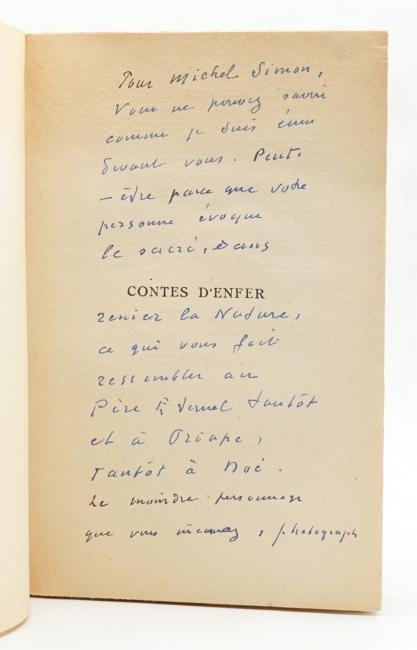 Pour Michel Simon,
Vous ne pouvez savoir
comme je suis ému
devant vous. Peut-
-être parce que votre
personne évoque
le sacré, sans
CONTES D'ENFER
renier la Nature,
ce qui vous fait
ressembler au
Père Éternel tantôt
et à Priape,
tantôt à Noé.
Le moindre personnage
que vous incarnez, photograph